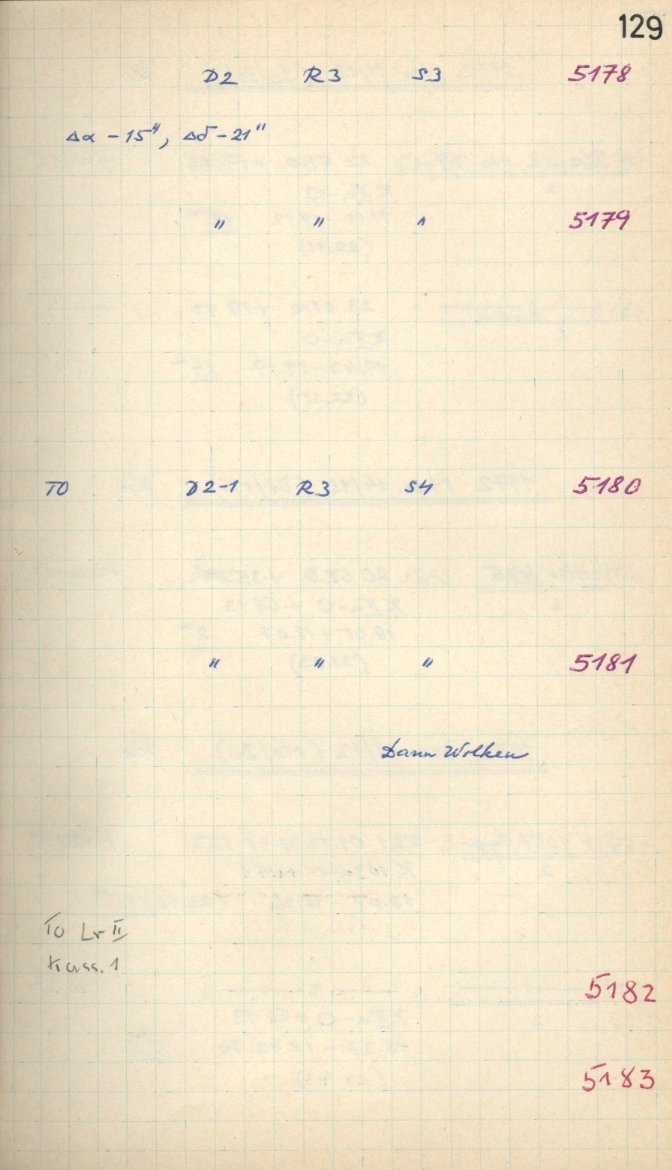 129
D2 R3 S3 5178
Δα - 15", Δδ - 21"
" " " 5179
TO D2-1 R3 S4 5180
" " " 5181
Dann Wolken
TO Lr II
Kass. 1
5182
5183